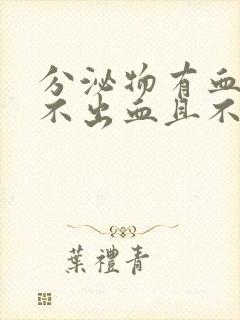 分泌物有血
不出血且不
葉禮青